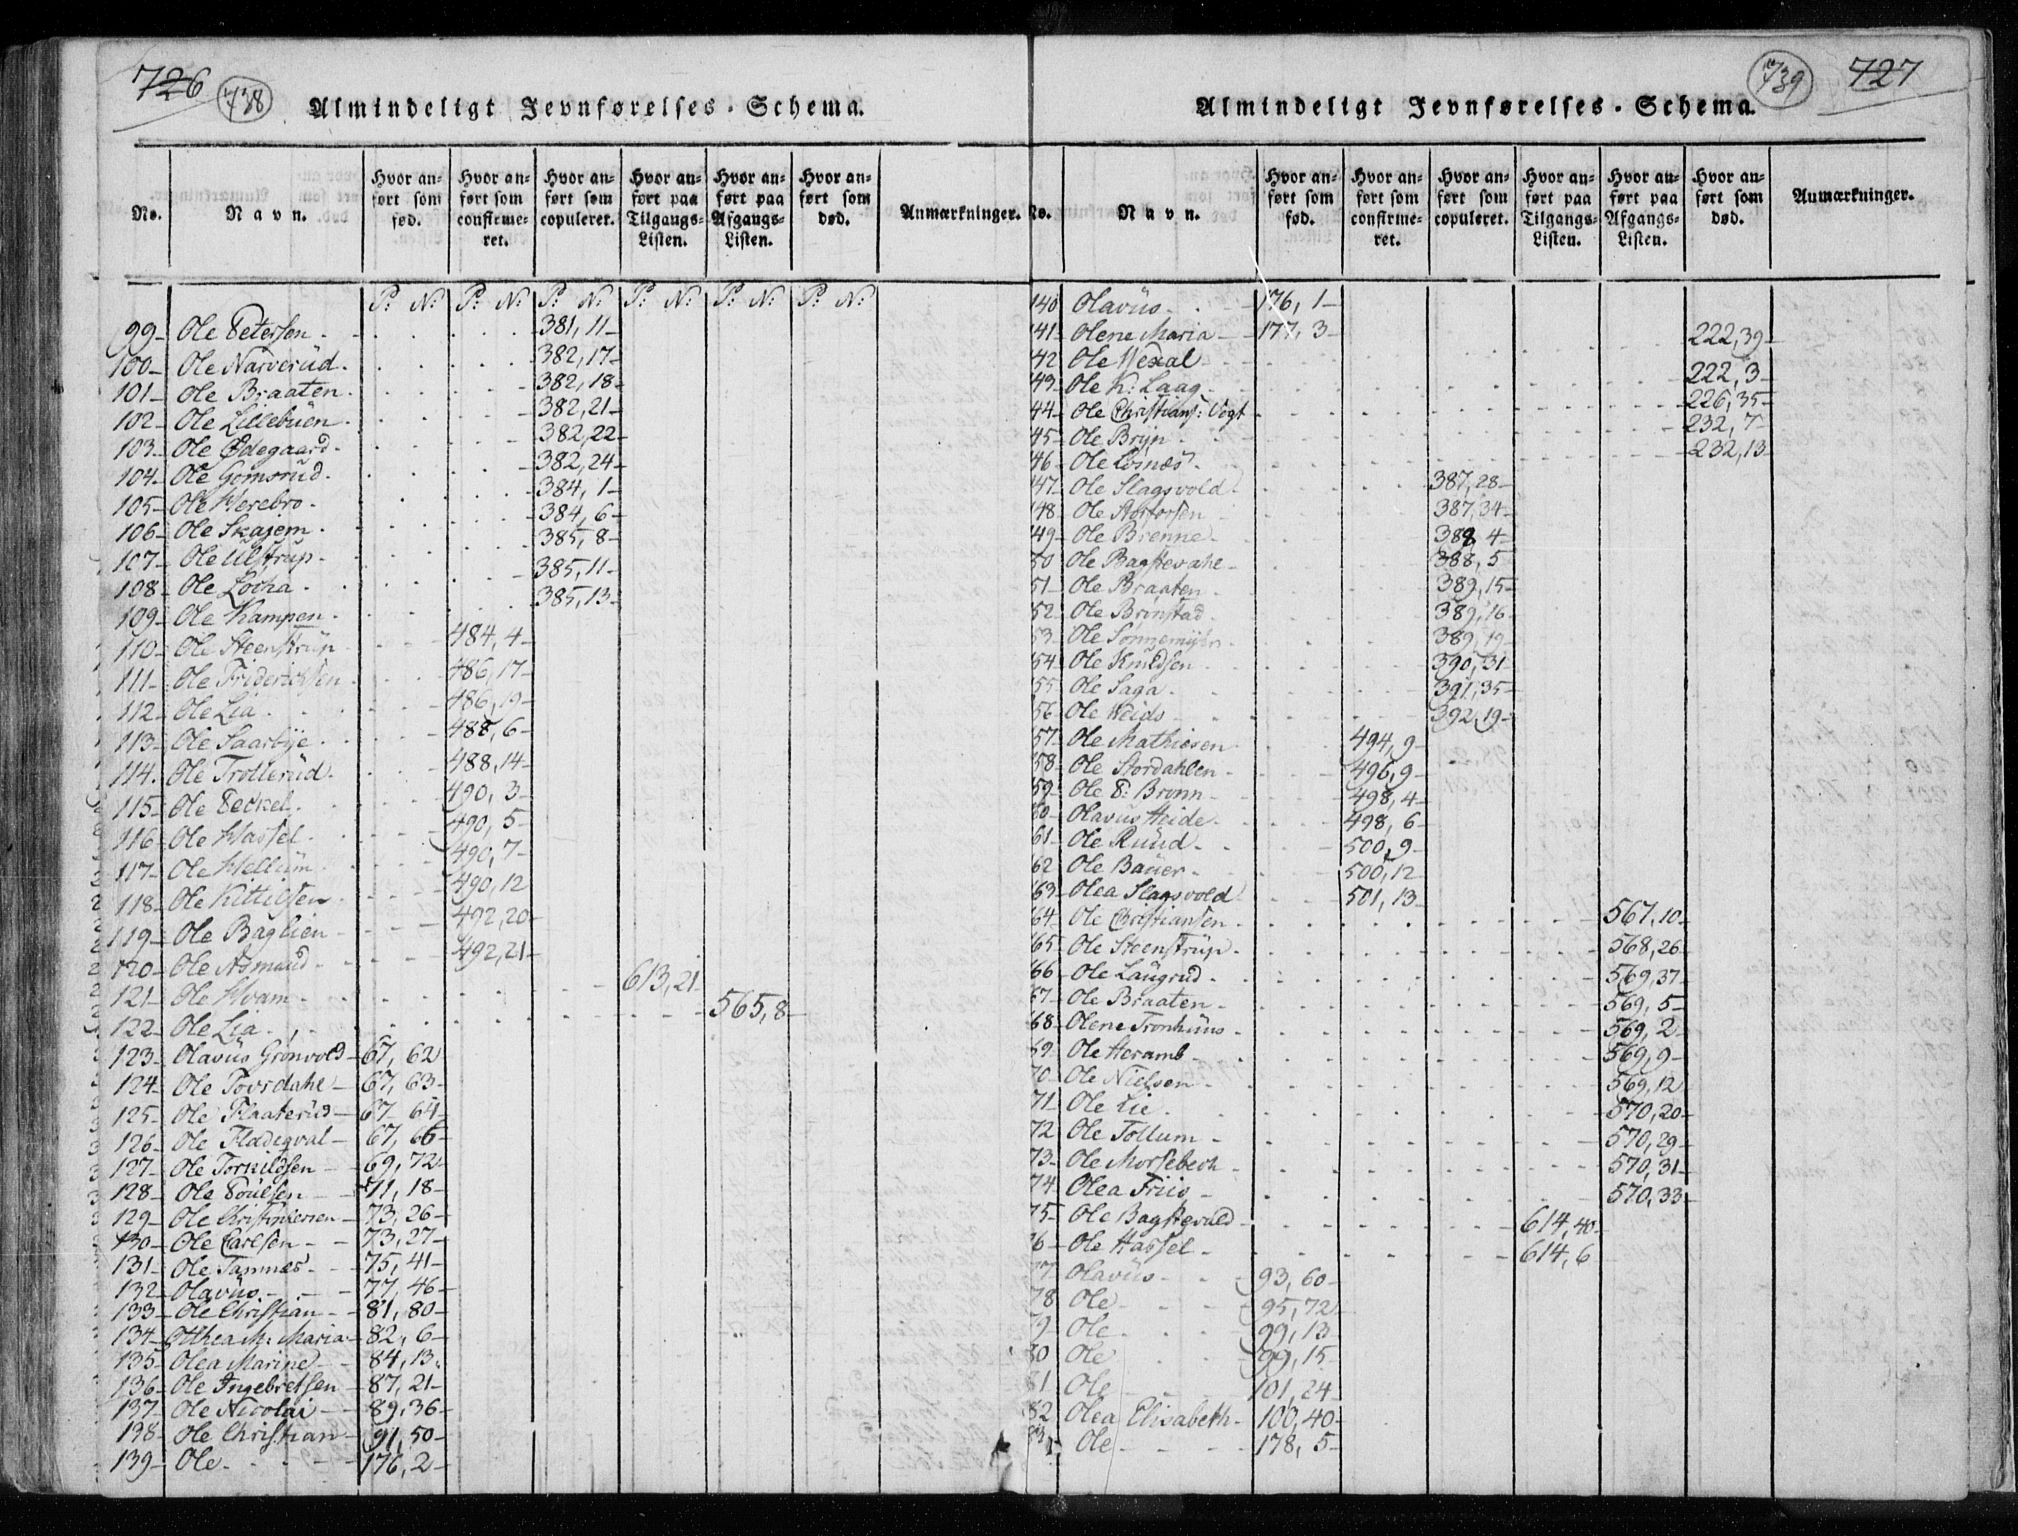 726 738
Almindeligt Jevnførelses-Schema.
No. Navn. Hvor anført som fød. Hvor anført som confirmeret. Hvor anført som copuleret. Hvor anført paa Tilgangs-Listen. Hvor anført paa Afgangs-Listen. Hvor anført som død. Anmærkninger.
P: No P: No P: No P: No P: No P: No
99 Ole Petersen 381, 11
100 Ole Narverud 382, 17
101 Ole Braaten 382, 18
102 Ole Lillebuen 382, 21
103 Ole Ødegaard 382, 22
104 Ole Gomsrud 382, 24
105 Ole Werebro 384, 1
106 Ole Skajem 384, 6
107 Ole Ulstrup 385, 8
108 Ole Locka 385, 11
109 Ole Kampen 385, 13
110 Ole Steenstrup 484, 4
111 Ole Friderichsen 486, 17
112 Ole Lia 486, 19
113 Ole Saarbye 488, 6
114 Ole Trollerud 488, 14
115 Ole Peckel 490, 3
116 Ole Hassel 490, 5
117 Ole Hellum 490, 7
118 Ole Kittilsen 490, 12
119 Ole Baglien 492, 20
120 Ole Asmaud 492, 21
121 Ole Hvam 613, 21
122 Ole Lia 565, 8
123 Olavus Gronvold 67, 62
124 Ole Tovrdahl 67, 63
125 Ole Plaaterud 67 64
126 Ole Flodegval 67, 66
127 Ole Torkildsen 69, 72
128 Ole Poulsen 71, 18
129 Ole Christinsersen 73, 26
130 Ole Carlsen 73, 27
131 Ole Tamnes 75, 41
132 Olavus 77, 46
133 Ole Christian 81, 80
134 Otthea M: Maria 82, 6
135 Olea Marine 84, 13
136 Ole Ingebretsen 87, 21
137 Ole Nicolai 89, 36
138 Ole Christian 91, 50
139 Ole 176, 2
739 727
Almindeligt Jevnførelses-Schema.
No. Navn. Hvor anført som fød. Hvor anført som confirmeret. Hvor anført som copuleret. Hvor anført paa Tilgangs-Listen. Hvor anført paa Afgangs-Listen. Hvor anført som død. Anmærkninger.
140 Olavus 176, 1
141 Olene Maria 177, 3
142 Ole Vexal 222, 39
43 Ole K: Laag 222, 3
44 Ole Christians: Vogt 226, 35
45 Ole Bryn 232, 7
46 Ole Losnæs 232, 13
147 Ole Slagsvold 387, 28
148 Ole Stortorsen 387, 34
49 Ole Brenne 388 4
50 Ole Bagstevahe 388, 5
51 Ole Braaten 389, 15
52 Ole Bronstad 389, 16
53 Ole 389, 19
54 Ole Knudsen 390, 31
55 Ole Saga 391, 35
56 Ole Heids 392, 19
57 Ole Mathiesen 494, 9
58 Ole Stordahlen 496, 9
59 Ole P: Bronn 498, 4
60 Olavus Heide 498, 6
61 Ole Ruud 500, 9
62 Ole Bauer 500, 12
63 Olea Slagsvold 501, 13
64 Ole Christiansen 567, 10
65 Ole Steenstrup 568, 26
66 Ole Laugrud 569, 37
67 Ole Braaten 569, 5
68 Olene Tronhuus 569, 2
69 Ole Heramb 569, 9
70 Ole Nielsen 569, 12
71 Ole Lie 570, 20
72 Ole Tollum 570, 29
73 Ole Morsebech 570, 31
74 Olea Friis 570, 33
75 Ole Bagstevald 614, 40
76 Ole Hassel 614, 6
77 Olavus 93, 60
78 Ole 95, 72
79 Ole 99, 13
80 Ole 99, 15
81 Ole 101, 24
82 Olea Elisabeth 100, 40
83 Ole 178, 5